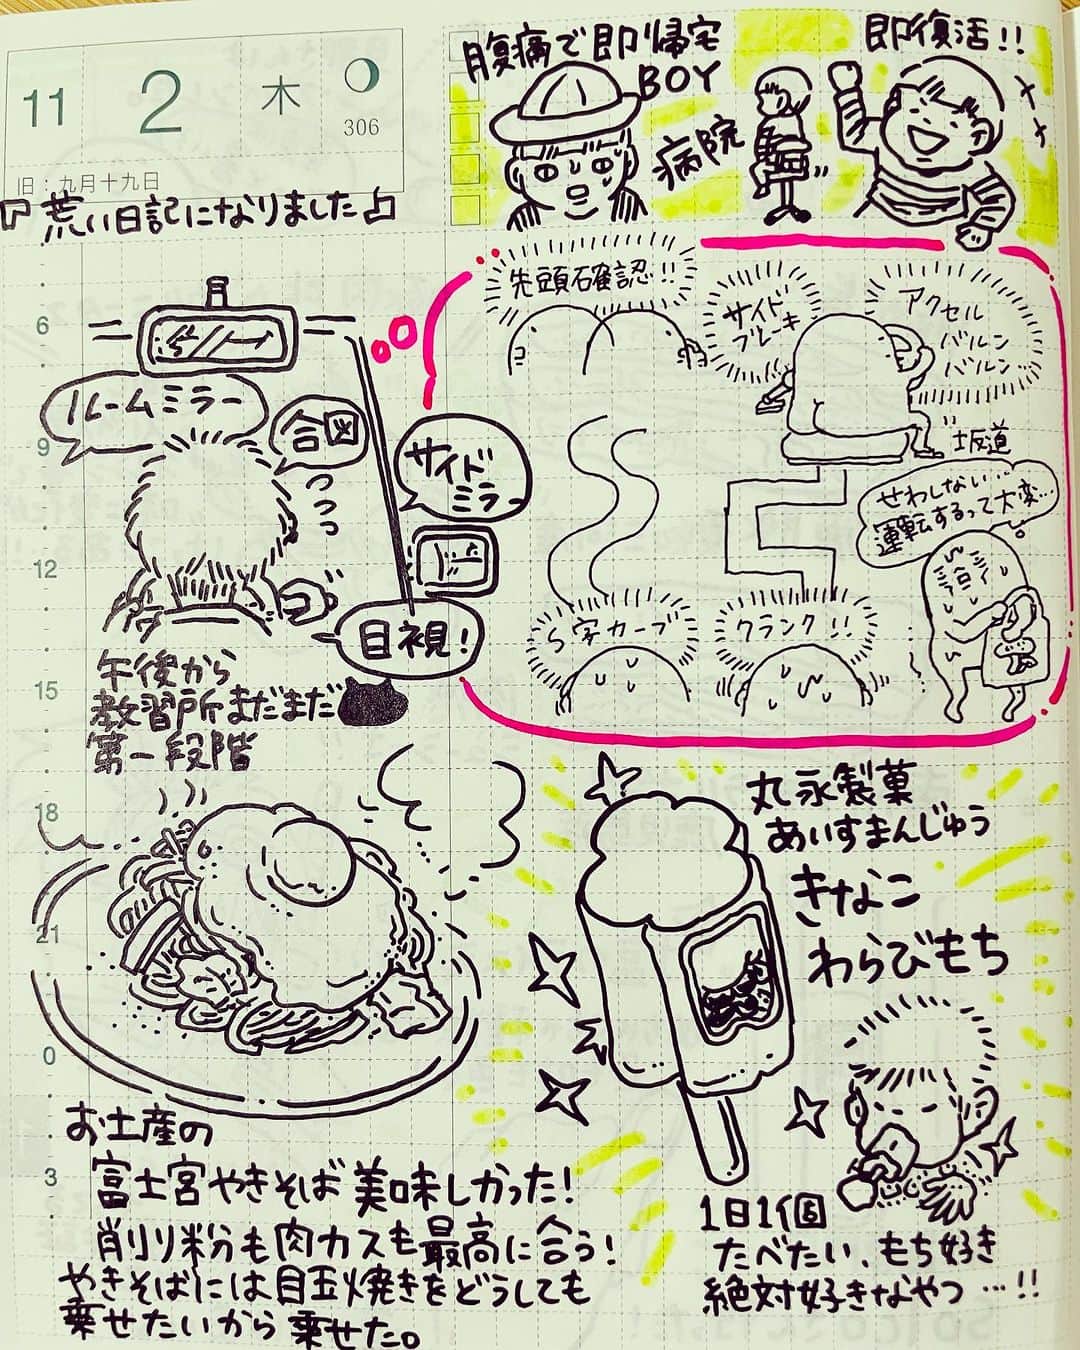 11
2
木
306
旧：九月十九日
『荒い日記になりました』
腹痛で即帰宅
BOY
病院
即復活!!
6
9
12
15
18
21
0
3
ルームミラー
合図
サイド
ミラー
目視!
午後から
教習所まだまだ
第一段階
先頭確認!!
サイド
ブレーキ
アクセル
バルン
バルン
坂道
せわしない…
運転するって大変…
S字カーブ
クランク!!
お土産の
富士宮やきそば美味しかった!
削り粉も肉カスも最高に合う!
やきそばには目玉焼きをどうしても
乗せたいから乗せた。
丸永製菓
あいすまんじゅう
きなこ
わらびもち
1日1個
たべたい、もち好き
絶対好きなやつ…!!